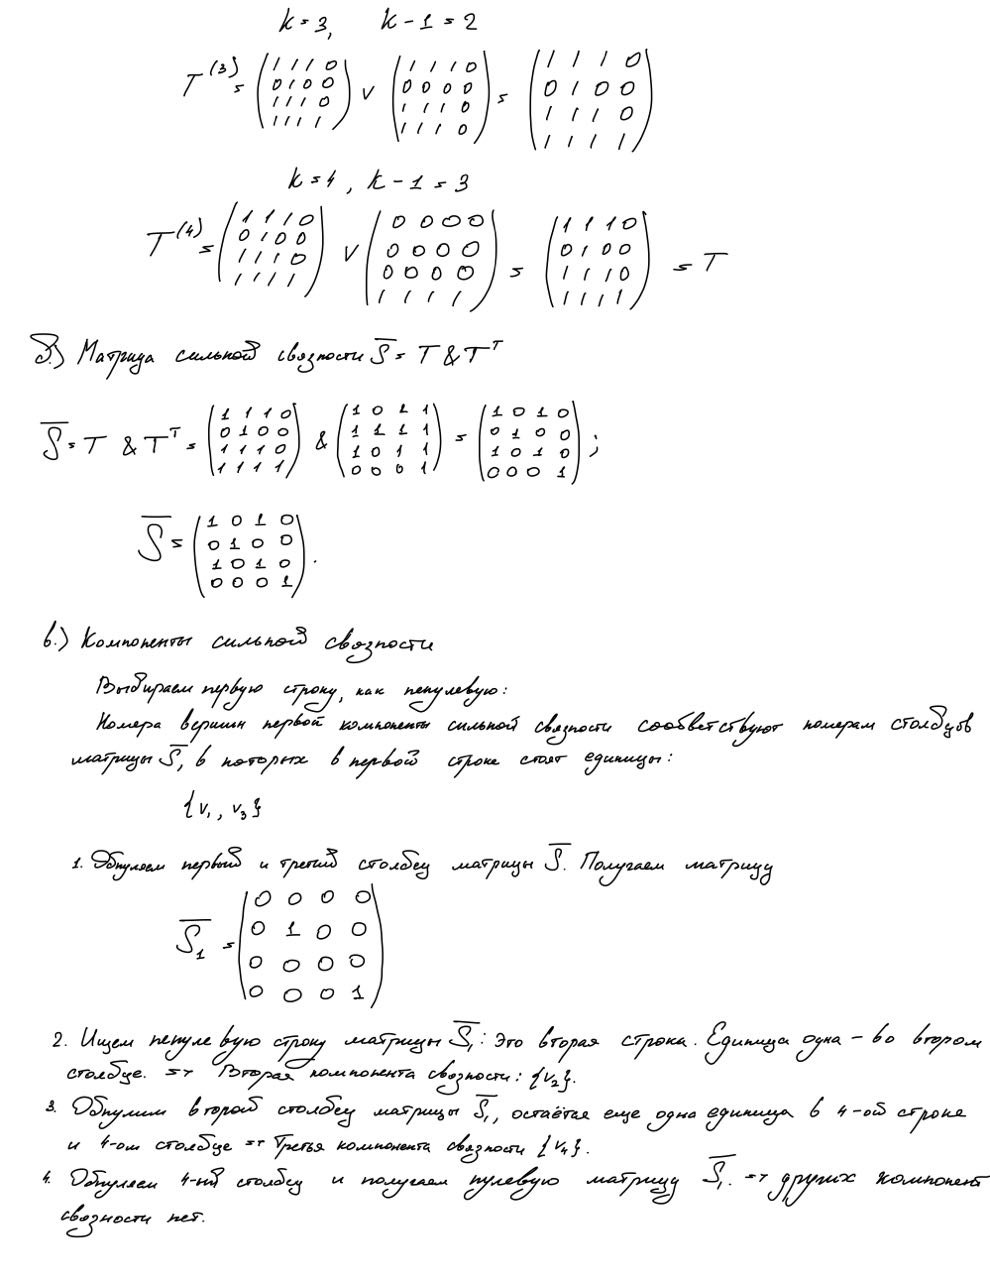 k=3, k-1=2
T^(3) = (1 1 1 0 / 0 1 0 0 / 1 1 1 0 / 1 1 1 1) ∨ (1 1 1 0 / 0 0 0 0 / 1 1 1 0 / 1 1 1 0) = (1 1 1 0 / 0 1 0 0 / 1 1 1 0 / 1 1 1 1)
k=4, k-1=3
T^(4) = (1 1 1 0 / 0 1 0 0 / 1 1 1 0 / 1 1 1 1) ∨ (0 0 0 0 / 0 0 0 0 / 0 0 0 0 / 1 1 1 1) = (1 1 1 0 / 0 1 0 0 / 1 1 1 0 / 1 1 1 1) = T
д.) Матрица сильной связности S̅ = T & T^T
S̅ = T & T^T = (1 1 1 0 / 0 1 0 0 / 1 1 1 0 / 1 1 1 1) & (1 0 1 1 / 1 1 1 1 / 1 0 1 1 / 0 0 0 1) = (1 0 1 0 / 0 1 0 0 / 1 0 1 0 / 0 0 0 1);
S̅ = (1 0 1 0 / 0 1 0 0 / 1 0 1 0 / 0 0 0 1).
в.) Компоненты сильной связности
Выбираем первую строку, как ненулевую:
Номера вершин первой компоненты сильной связности сообветствуют номерам столбцов
матрицы S̅, в которых в первой строке стоят единицы:
{v₁, v₃}
1. Обнуляем первый и третий столбец матрицы S̅. Получаем матрицу
S̅₁ = (0 0 0 0 / 0 1 0 0 / 0 0 0 0 / 0 0 0 1)
2. Ищем ненулевую строку матрицы S̅₁: Это вторая строка. Единица одна – во втором
столбце. => Вторая компонента связности: {v₂}.
3. Обнулим второй столбец матрицы S̅₁, остаётся еще одна единица в 4-ой строке
и 4-ом столбце => Третья компонента связности {v₄}.
4. Обнуляем 4-ый столбец и получаем нулевую матрицу S̅₁. => других компонент
связности нет.